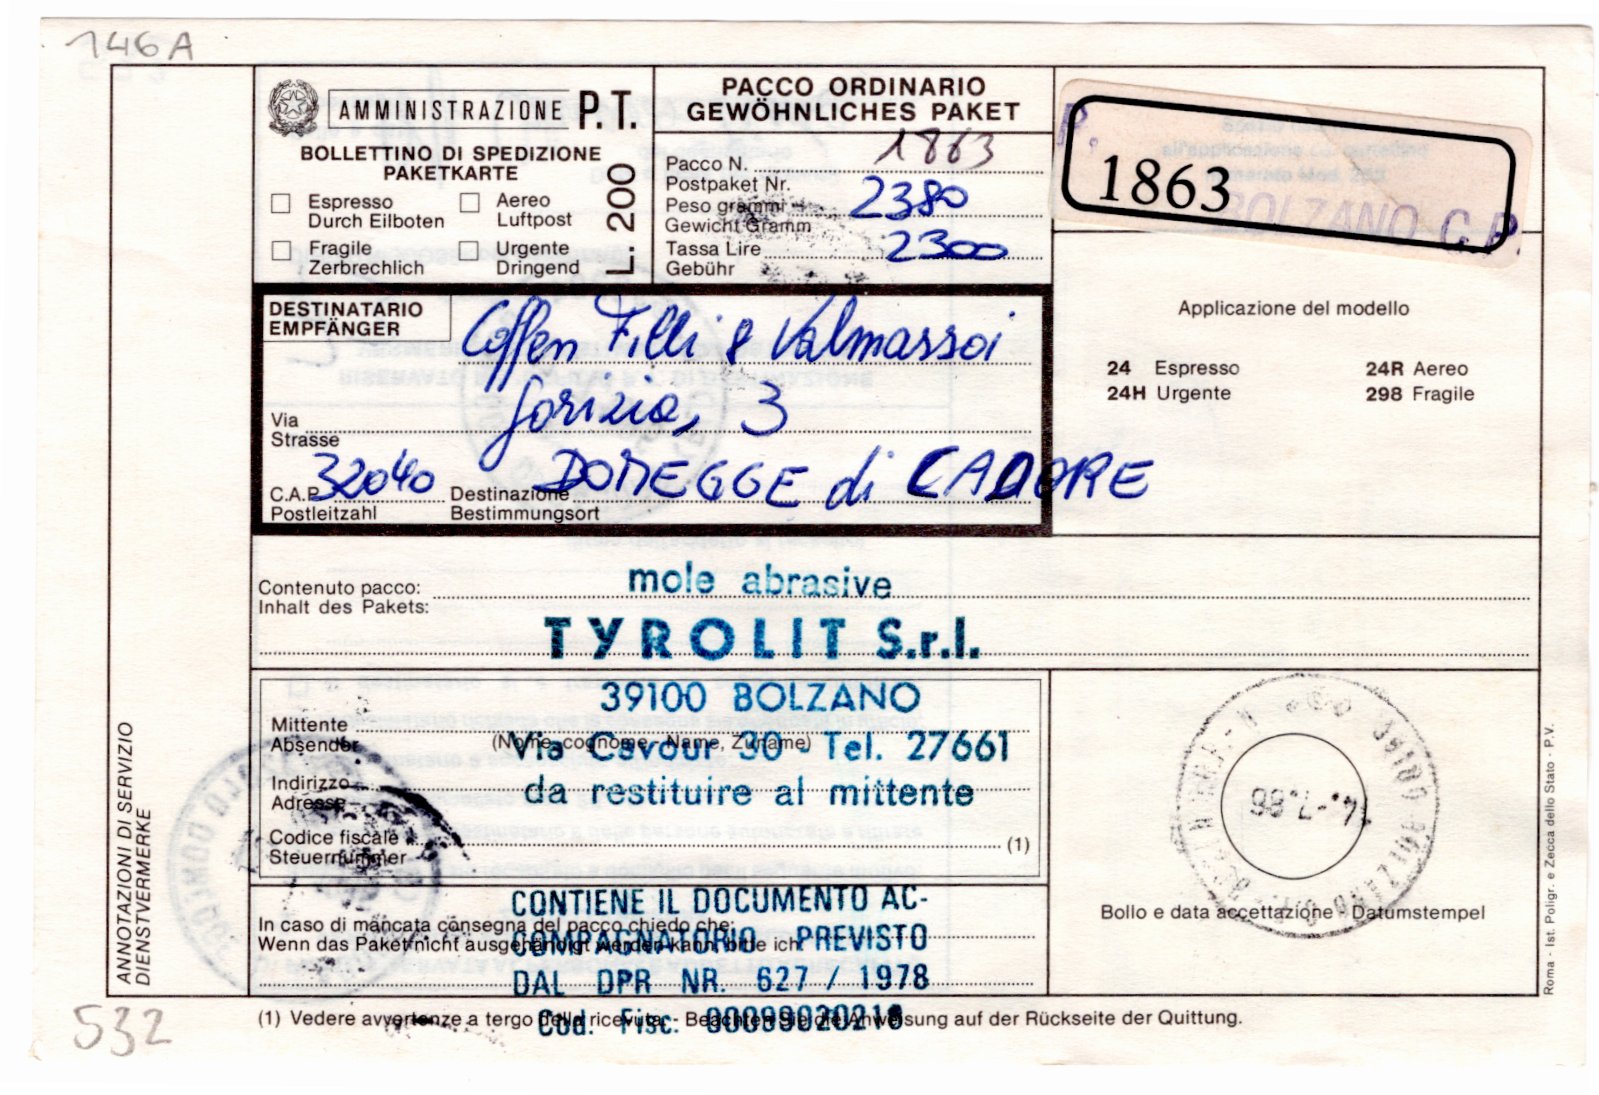 146A
AMMINISTRAZIONE P.T.
BOLLETTINO DI SPEDIZIONE
PAKETKARTE
Espresso
Durch Eilboten
Aereo
Luftpost
Fragile
Zerbrechlich
Urgente
Dringend
L. 200
PACCO ORDINARIO
GEWÖHNLICHES PAKET
Pacco N. 1863
Postpaket Nr.
Peso grammi 2380
Gewicht Gramm
Tassa Lire 2300
Gebühr
P.
1863
BOLZANO C.P.
DESTINATARIO
EMPFÄNGER
Coffen F.lli & Valmassoi
Via Gorizia, 3
Strasse
C.A.P. 32040 Destinazione DOMEGGE di CADORE
Postleitzahl Bestimmungsort
Applicazione del modello
24 Espresso 24R Aereo
24H Urgente 298 Fragile
Contenuto pacco: mole abrasive
Inhalt des Pakets:
TYROLIT S.r.l.
39100 BOLZANO
Mittente
Absender
(Nome, cognome - Name, Zuname)
Via Cavour 30 - Tel. 27661
Indirizzo
Adresse
da restituire al mittente
Codice fiscale
Steuernummer
(1)
CONTIENE IL DOCUMENTO AC-
In caso di mancata consegna del pacco chiedo che:
Wenn das Paket nicht ausgehändigt werden kann, bitte ich
COMPAGNATORIO PREVISTO
DAL DPR NR. 627 / 1978
Cod. Fisc.
(1) Vedere avvertenze a tergo della ricevuta. - Beachten Sie die Anweisung auf der Rückseite der Quittung.
14.-7.88
Bollo e data accettazione - Datumstempel
ANNOTAZIONI DI SERVIZIO
DIENSTVERMERKE
Roma - Ist. Poligr. e Zecca dello Stato - P.V.
532